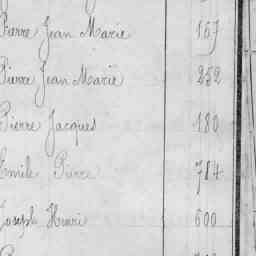 Pierre Jean Marie 157
Pierre Jean Marie 252
Pierre Jacques 180
Emile Pierre 784
Joseph Henri 600